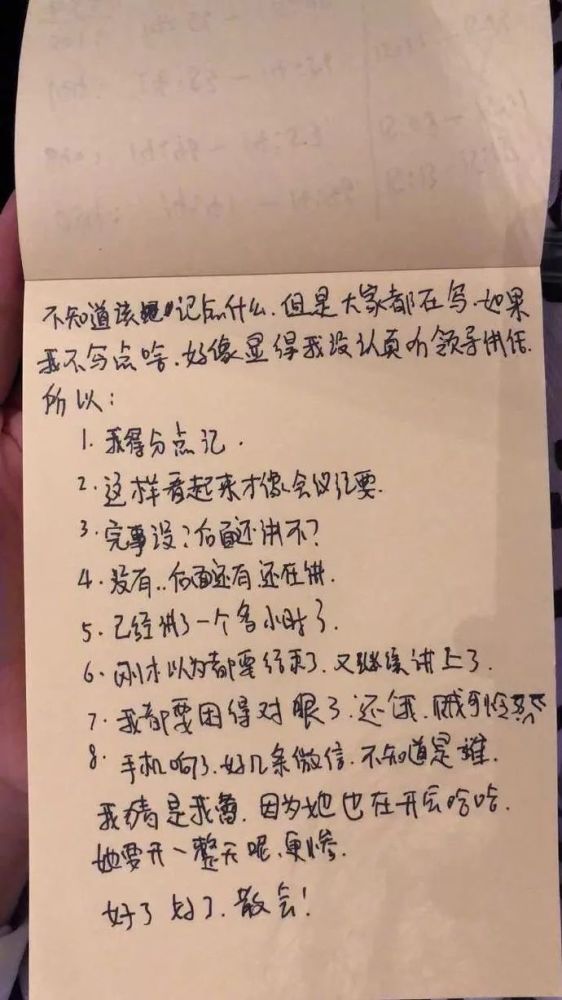 不知道该记点什么.但是大家都在写.如果
我不写点啥.好像显得我没认真听领导讲话.
所以:
1.我得分点记.
2.这样看起来才像会议纪要.
3.完事没?后面还讲不?
4.没有..后面还有还在讲.
5.已经讲了一个多小时了.
6.刚才以为都要结束了.又继续讲上了.
7.我都要困得对眼了.还饿.饿到
8.手机响了.好几条微信.不知道是谁.
我猜是我.因为她也在开会哈哈.
她要开一整天呢.更惨.
好了.散会!